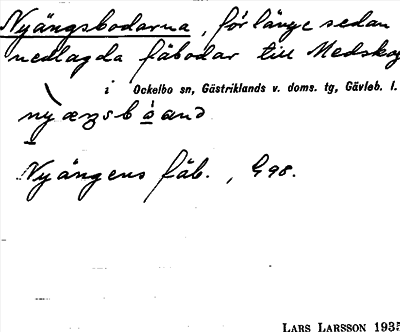 Nyängsbodarna, för länge sedan
nedlagda fäbodar till Medskog
i Ockelbo sn, Gästriklands v. doms. tg, Gävleb. l.
Nyängens fäb., G98.
LARS LARSSON 1935